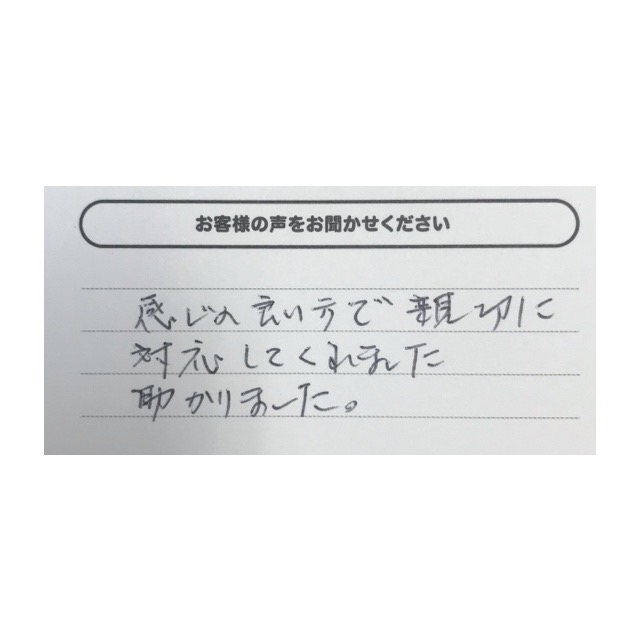 お客様の声をお聞かせください
感じの良い方で親切に
対応してくれました
助かりました。